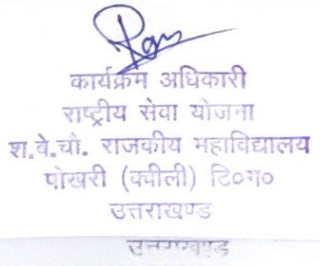 कार्यक्रम अधिकारी
राष्ट्रीय सेवा योजना
श.बे.चौ. राजकीय महाविद्यालय
पोखरी (क्वीली) टि०ग०
उत्तराखण्ड
उत्तराखण्ड